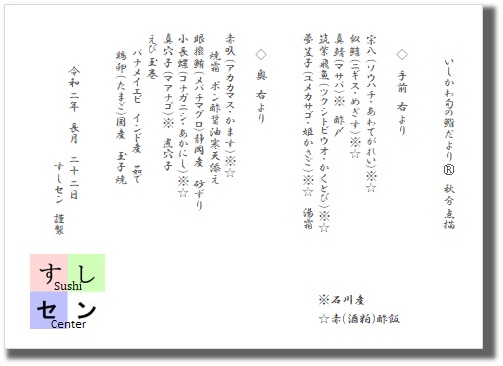 いしかわ旬の鮨だより® 秋分点描
◇ 手前 右より
宗八(ソウハチ・あわてがれい)※☆
似鱚(ニギス・めぎす)※☆
真鯖(マサバ)※ 酢〆
筑紫飛魚(ツクシトビウオ・かくとび)※☆
夢笠子(ユメカサゴ・姫かさご)※☆ 湯霜
◇ 奥 右より
赤叺(アカカマス・かます)※☆
焼霜 ポン酢醤油寒天添え
眼撥鮪(メバチマグロ)静岡産 砂ずり
小長螺(コナガニシ・あかにし)※☆
真穴子(マアナゴ)※ 煮穴子
えび玉巻
バナメイエビ インド産 茹で
鶏卵(たまご)国産 玉子焼
令和二年 長月 二十二日
すしセン 謹製
※石川産
☆赤(酒粕)酢飯
すし
Sushi
セン
Center